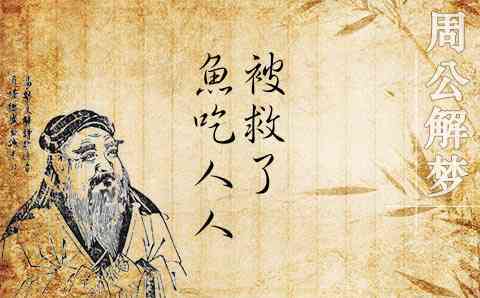 周公解梦
被救了
魚吃人人